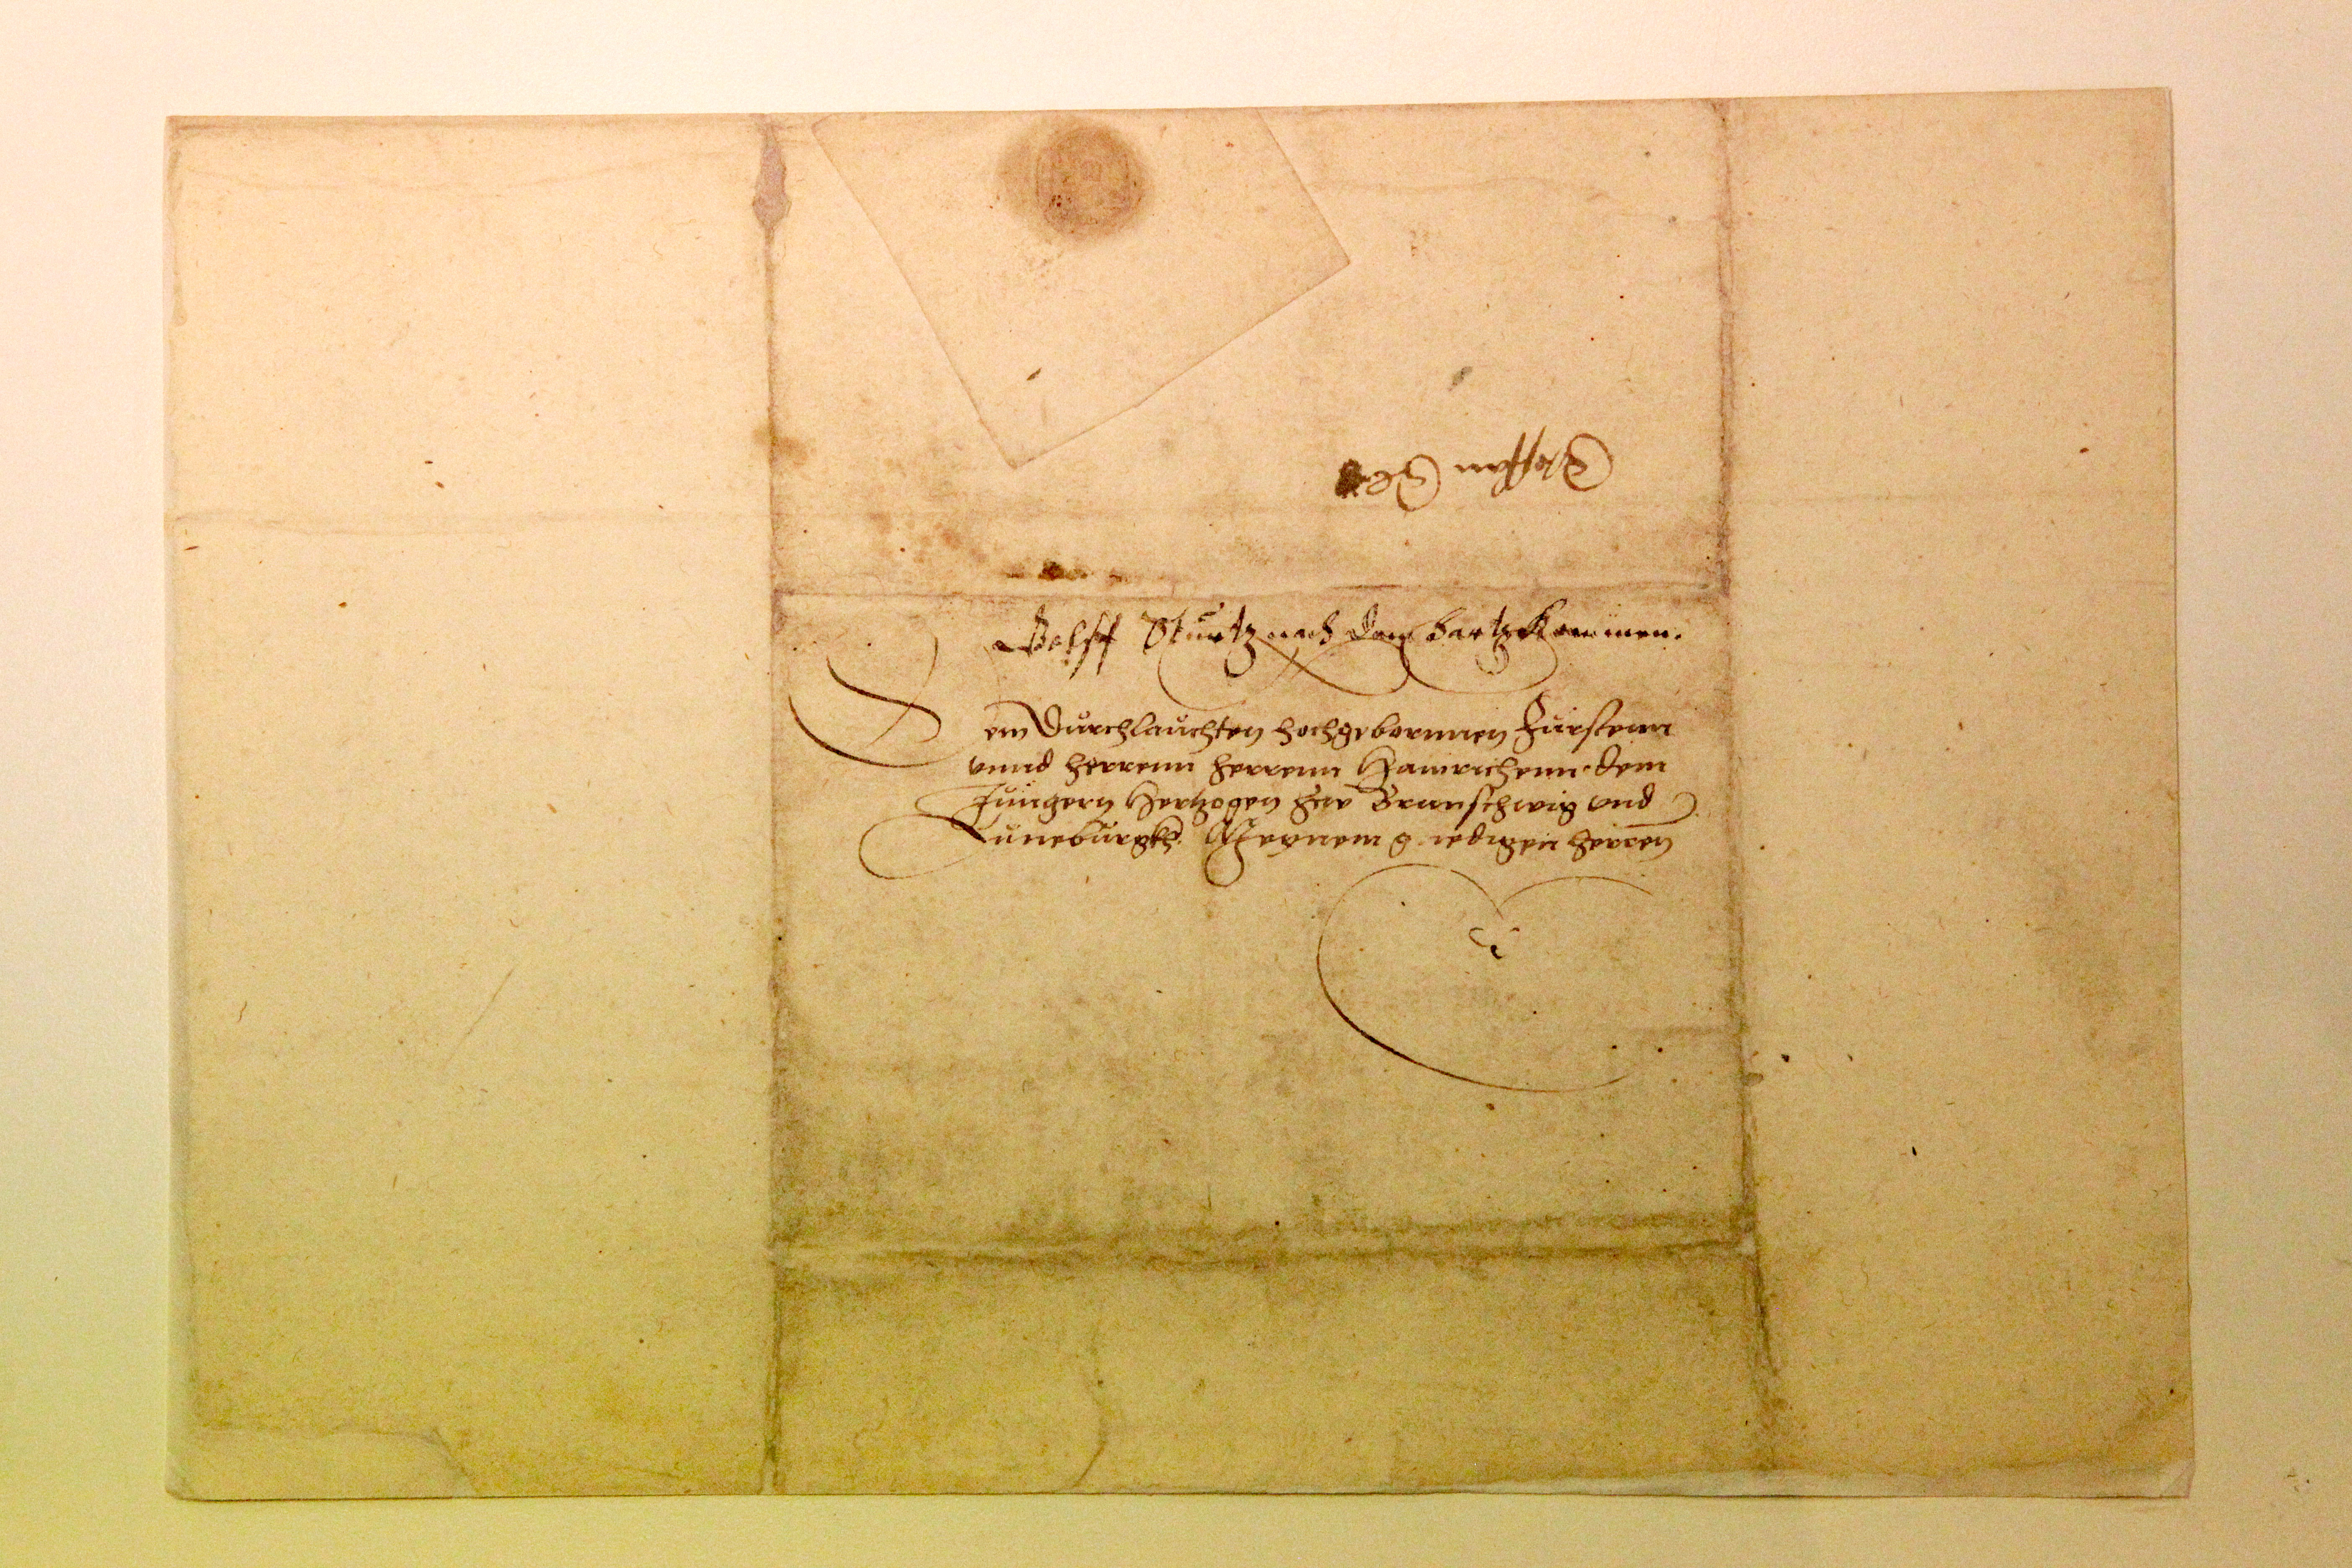 Wolff Sturtz nach dem hartz kommen.
Dem Durchlauchten hochgebornnen Fursten
vnnd herrenn herrenn Hainrichenn dem
Jungern Hertzogen zuw Braunschwig vnd
Luneburgkh Meynem g nedigen herren
Steffan